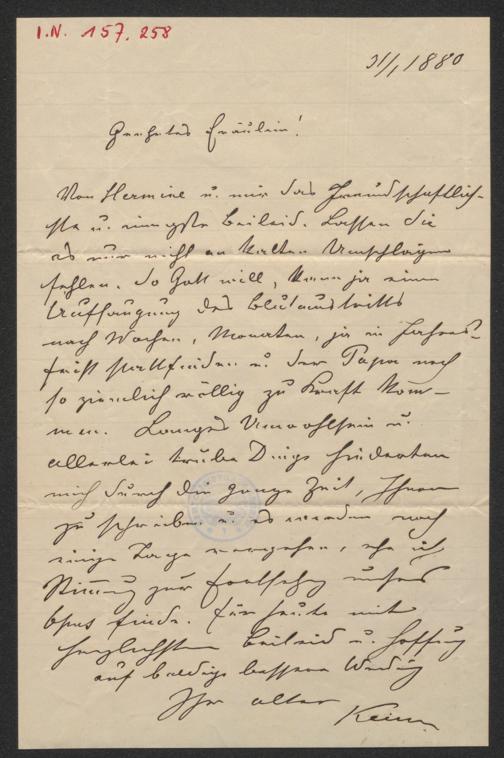 I.N. 157.258
31/1 1880
Geehrtes Fräulein!
Von Hermine u. mir das Freundschaftlich-
ste u. innigste Beileid. Lassen Sie
es nur nicht an kalten Umschlägen
fehlen. So Gott will, kann ja eine
Aufsaugung des Blutaustritts
nach Wochen, Monaten, ja in Jahres-
frist stattfinden u. der Papa noch
so ziemlich völlig zu Kraft kom-
men. Langes Unwohlsein u.
allerlei trübe Dinge hinderten
mich durch die ganze Zeit, Ihnen
zu schreiben u. es werden noch
einige Tage vergehen, ehe ich
Stimmung zur Fortsetzg unsers
Opus finde. Für heute mit
herzlichstem Beileid u. Hoffnung
auf baldige bessere Wendung
Ihr alter